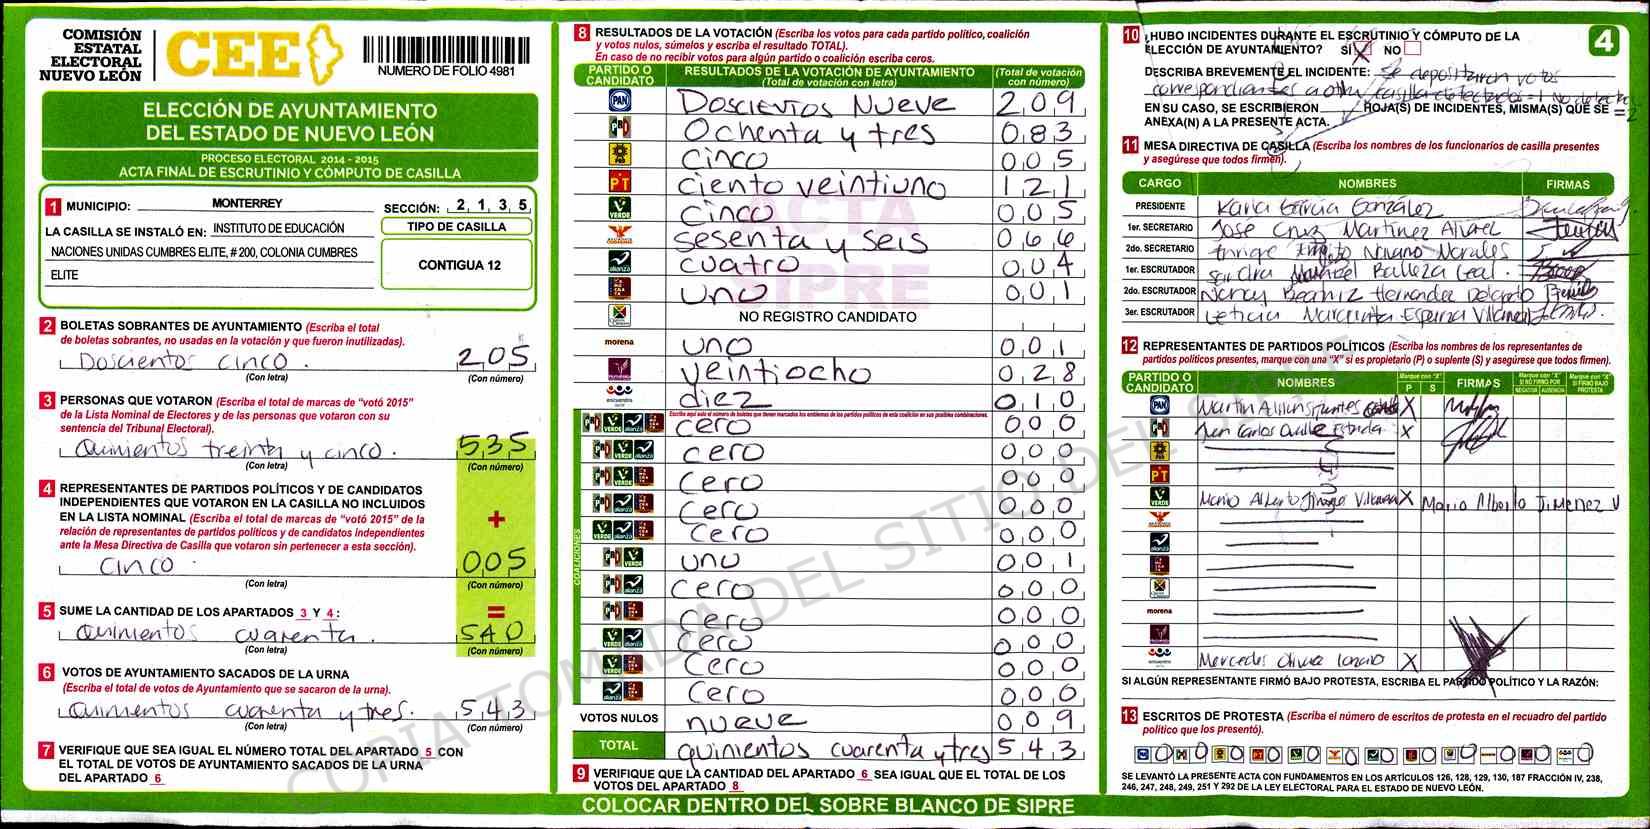 COMISIÓN
ESTATAL
ELECTORAL
NUEVO LEÓN
CEE
NUMERO DE FOLIO 4981
ELECCIÓN DE AYUNTAMIENTO
DEL ESTADO DE NUEVO LEÓN
PROCESO ELECTORAL 2014 - 2015
ACTA FINAL DE ESCRUTINIO Y CÓMPUTO DE CASILLA
1 MUNICIPIO: MONTERREY SECCIÓN: 2,1,3,5
LA CASILLA SE INSTALÓ EN: INSTITUTO DE EDUCACIÓN
NACIONES UNIDAS CUMBRES ELITE, # 200, COLONIA CUMBRES
ELITE
TIPO DE CASILLA
CONTIGUA 12
2 BOLETAS SOBRANTES DE AYUNTAMIENTO (Escriba el total
de boletas sobrantes, no usadas en la votación y que fueron inutilizadas).
Doscientos cinco. 205
(Con letra) (Con número)
3 PERSONAS QUE VOTARON (Escriba el total de marcas de “votó 2015”
de la Lista Nominal de Electores y de las personas que votaron con su
sentencia del Tribunal Electoral).
Quinientos treinta y cinco. 535
(Con letra) (Con número)
4 REPRESENTANTES DE PARTIDOS POLÍTICOS Y DE CANDIDATOS
INDEPENDIENTES QUE VOTARON EN LA CASILLA NO INCLUIDOS
EN LA LISTA NOMINAL (Escriba el total de marcas de “votó 2015” de la
relación de representantes de partidos políticos y de candidatos independientes
ante la Mesa Directiva de Casilla que votaron sin pertenecer a esta sección).
+
cinco 005
(Con letra) (Con número)
5 SUME LA CANTIDAD DE LOS APARTADOS 3 Y 4: =
Quinientos cuarenta. 540
(Con letra) (Con número)
6 VOTOS DE AYUNTAMIENTO SACADOS DE LA URNA
(Escriba el total de votos de Ayuntamiento que se sacaron de la urna).
Quinientos cuarenta y tres. 543
(Con letra) (Con número)
7 VERIFIQUE QUE SEA IGUAL EL NÚMERO TOTAL DEL APARTADO 5 CON
EL TOTAL DE VOTOS DE AYUNTAMIENTO SACADOS DE LA URNA
DEL APARTADO 6
8 RESULTADOS DE LA VOTACIÓN (Escriba los votos para cada partido político, coalición
y votos nulos, súmelos y escriba el resultado TOTAL).
En caso de no recibir votos para algún partido o coalición escriba ceros.
PARTIDO O CANDIDATO RESULTADOS DE LA VOTACIÓN DE AYUNTAMIENTO (Total de votación con letra) (Total de votación con número)
PAN Doscientos Nueve 209
PRD Ochenta y tres 083
PRD cinco 005
PT ciento veintiuno 121
VERDE cinco 005
sesenta y seis 066
alianza cuatro 004
uno 001
NO REGISTRO CANDIDATO
morena uno 001
veintiocho 028
encuentro diez 010
Escriba aquí solo el número de boletas que tienen marcados los emblemas de los partidos políticos de esta coalición en sus posibles combinaciones.
COALICIONES
cero 000
cero 000
cero 000
cero 000
cero 000
uno 001
cero 000
cero 000
cero 000
cero 000
cero 000
VOTOS NULOS nueve 009
TOTAL quinientos cuarenta y tres 543
9 VERIFIQUE QUE LA CANTIDAD DEL APARTADO 6 SEA IGUAL QUE EL TOTAL DE LOS
VOTOS DEL APARTADO 8
COLOCAR DENTRO DEL SOBRE BLANCO DE SIPRE
ACTA
SIPRE
COPIA TOMADA DEL SITIO DEL SIPRE
4
10 ¿HUBO INCIDENTES DURANTE EL ESCRUTINIO Y CÓMPUTO DE LA
ELECCIÓN DE AYUNTAMIENTO? SÍ X NO
DESCRIBA BREVEMENTE EL INCIDENTE: Se depositaron votos
correspondientes a otra casilla
EN SU CASO, SE ESCRIBIERON HOJA(S) DE INCIDENTES, MISMA(S) QUE SE
ANEXA(N) A LA PRESENTE ACTA. =2
11 MESA DIRECTIVA DE CASILLA (Escriba los nombres de los funcionarios de casilla presentes
y asegúrese que todos firmen).
CARGO NOMBRES FIRMAS
PRESIDENTE Karla García González
1er. SECRETARIO José Cruz Martínez
2do. SECRETARIO Enrique Navarro Morales
1er. ESCRUTADOR Sandra Balleza Leal.
2do. ESCRUTADOR Nancy Beatriz Hernandez Delgado
3er. ESCRUTADOR Leticia Margarita Esparza
12 REPRESENTANTES DE PARTIDOS POLÍTICOS (Escriba los nombres de los representantes de
partidos políticos presentes, marque con una “X” si es propietario (P) o suplente (S) y asegúrese que todos firmen).
PARTIDO O CANDIDATO NOMBRES Marque con “X” P S FIRMAS Marque con “X” SI NO FIRMÓ POR NEGATIVA AUSENCIA Marque con “X” SI FIRMÓ BAJO PROTESTA
PAN Martin X
Juan Carlos Ovalle Estrada X
PRD
PT
VERDE Mario Alberto X Mario Alberto Jimenez V
alianza
morena
encuentro Mercedes Lozano X
SI ALGÚN REPRESENTANTE FIRMÓ BAJO PROTESTA, ESCRIBA EL PARTIDO POLÍTICO Y LA RAZÓN:
13 ESCRITOS DE PROTESTA (Escriba el número de escritos de protesta en el recuadro del partido
político que los presentó).
SE LEVANTÓ LA PRESENTE ACTA CON FUNDAMENTOS EN LOS ARTÍCULOS 126, 128, 129, 130, 187 FRACCIÓN IV, 238,
246, 247, 248, 249, 251 Y 292 DE LA LEY ELECTORAL PARA EL ESTADO DE NUEVO LEÓN.